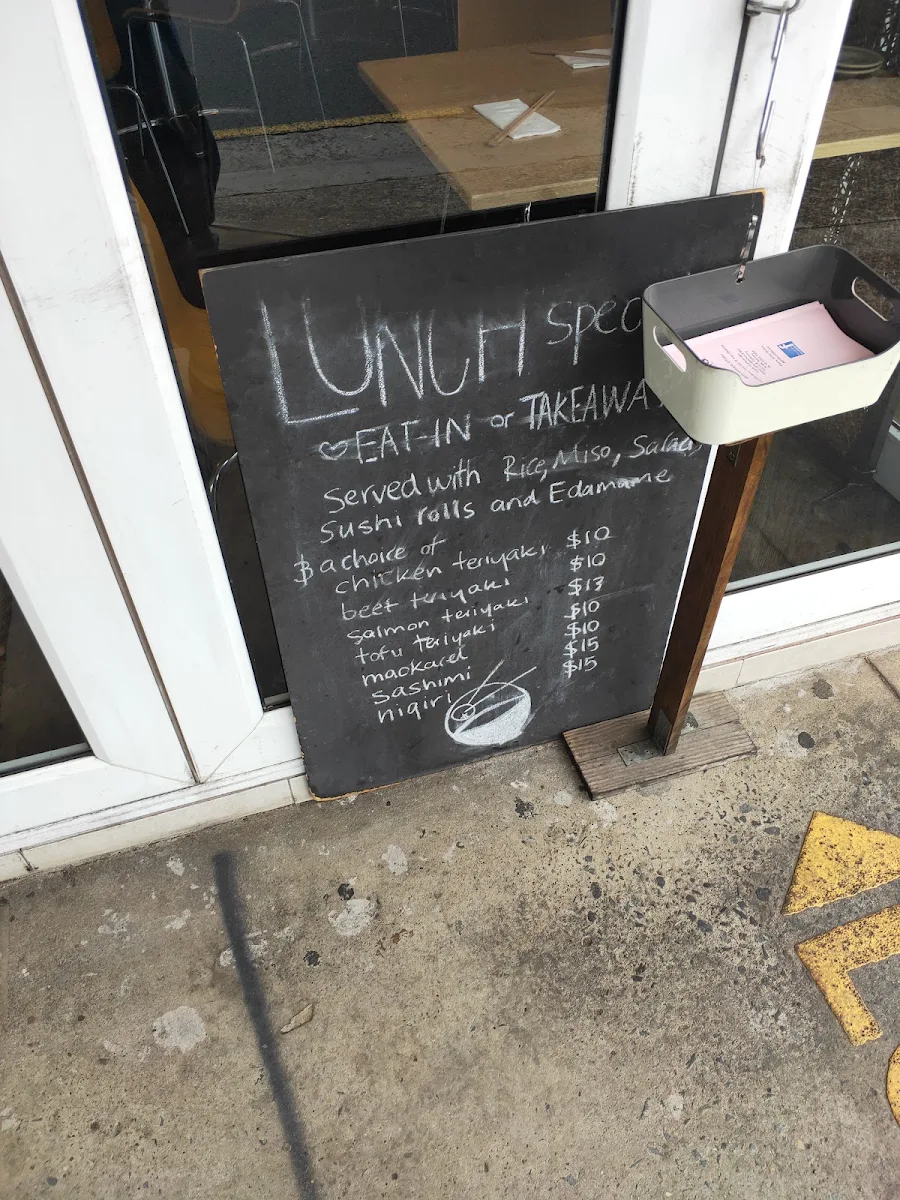 LUNCH Spec
♡ EAT-IN or TAKEAWA
Served with Rice, Miso, Salad,
Sushi rolls and Edamame
$ a choice of
chicken teriyaki $10
beef teriyaki $10
salmon teriyaki $13
tofu teriyaki $10
mackarel $10
sashimi $15
nigiri $15